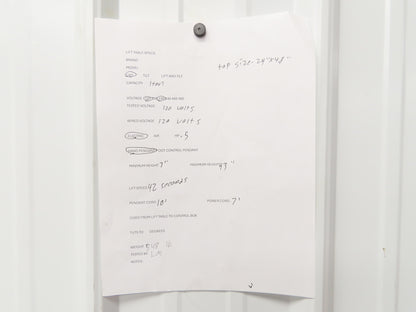 LIFT TABLE SPECS
BRAND
MODEL top size-24"x48"
LIFT TILT LIFT AND TILT
CAPACITY 1ton
VOLTAGE
TESTED VOLTAGE 120 volts
WIRED VOLTAGE 120 volts
ELECTRIC AIR HP .5
HAND PENDANT FOOT CONTROL PENDANT
MINIMUM HEIGHT 7" MAXIMUM HEIGHT 43"
LIFT SPEED 42 seconds
PENDANT CORD 10' POWER CORD 7'
CORD FROM LIFT TABLE TO CONTROL BOX
TILTS TO DEGREES
WEIGHT 548 lb
TESTED BY LM
NOTES